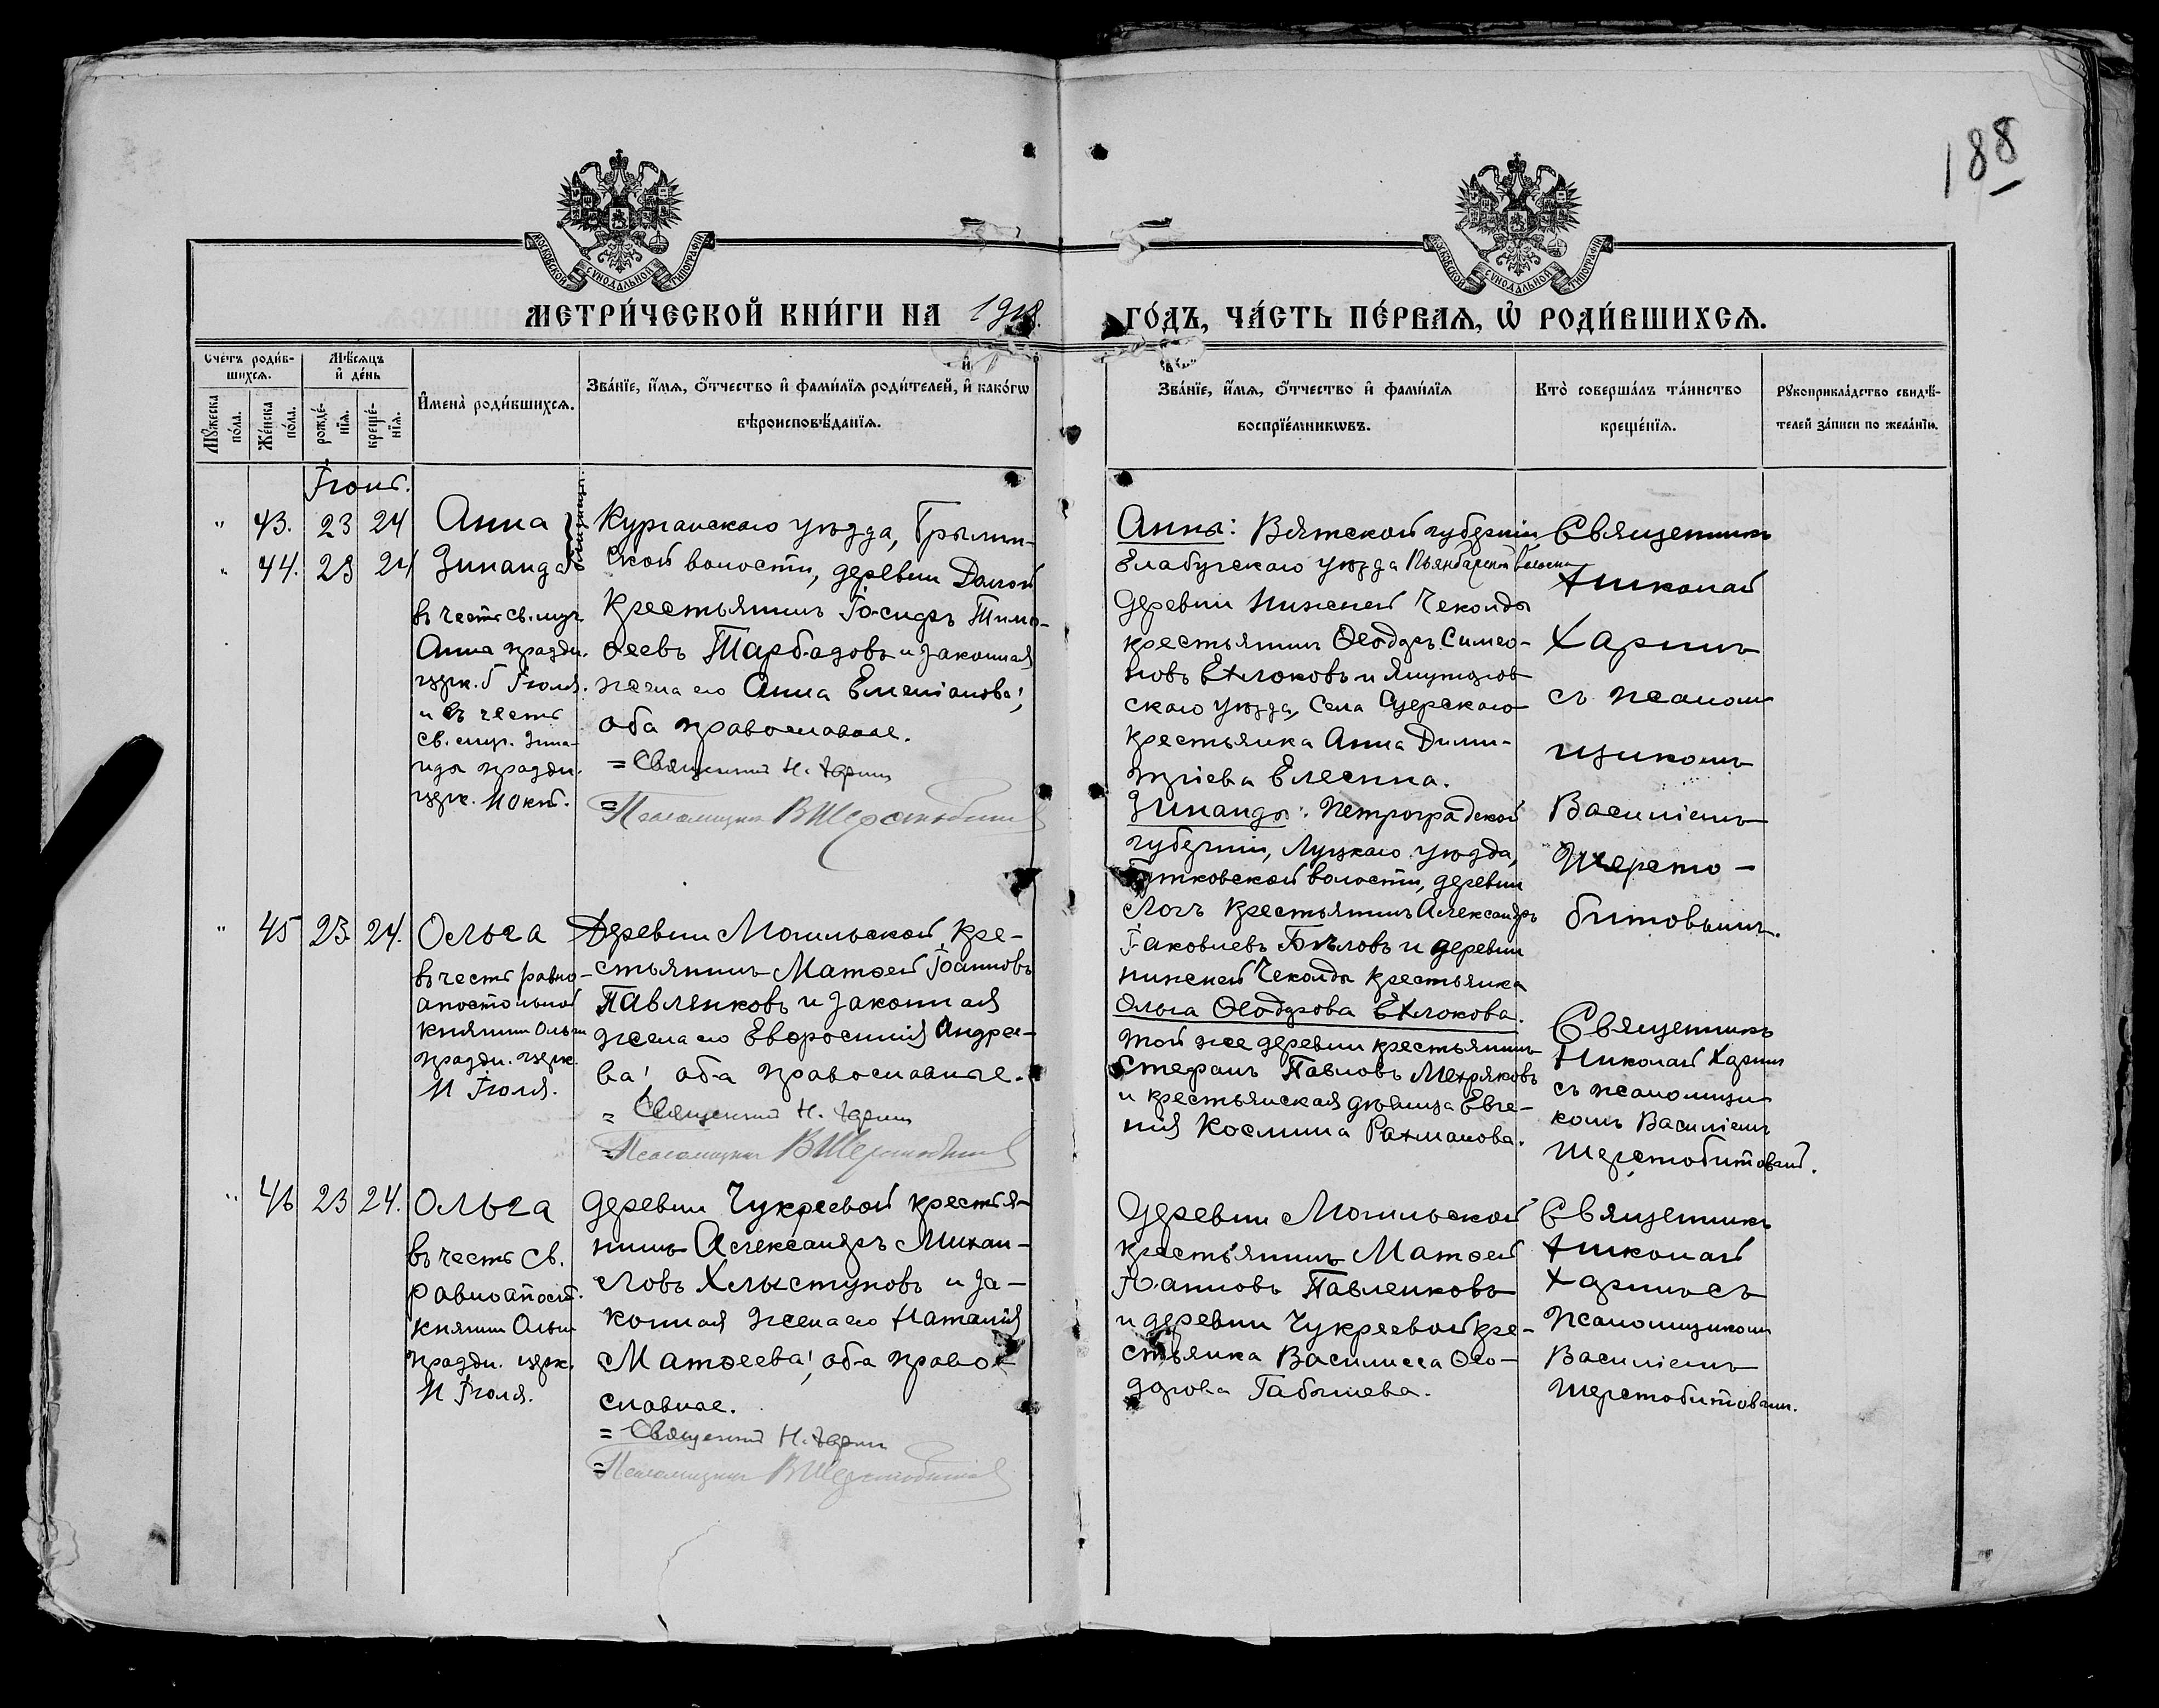 188
МОСКОВСКОЙ СѴНОДАЛЬНОЙ ТИПОГРАФІИ
МОСКОВСКОЙ СѴНОДАЛЬНОЙ ТИПОГРАФІИ
МЕТРИ́ЧЕСКОЙ КНИ́ГИ НА 1918
ГО́ДЪ, ЧА́СТЬ ПЕ́РВАѦ, Ѡ҆ РОДИ́ВШИХСѦ.
Сче́тъ роди́в-
шихсѧ.
Мѣ́сѧцъ
и҆ де́нь
Мꙋ́жеска
по́ла.
Же́нска
по́ла.
рожде́-
нїѧ.
креще́-
нїѧ.
И҆мена̀ роди́вшихсѧ.
Зва́нїе, и҆́мѧ, ѻ҆́тчество и҆ фами́лїѧ роди́телей, и҆ како́гѡ
вѣроисповѣ́данїѧ.
Зва́нїе, и҆́мѧ, ѻ҆́тчество и҆ фами́лїѧ
воспрїе́мникѡвъ.
Кто̀ соверша́лъ та́инство
креще́нїѧ.
Рꙋкоприкла́дство свидѣ́-
телей за́писи по жела́нїю.
Іюнь.
" 43. 23 24 Анна
" 44. 23 24 Зинаида
близнецы.
въ честь св. муч.
Анна праздн.
церк. 5 Іюля.
и въ честь
св. муч. Зина-
ида праздн.
церк. 11 Окт.
Курганскаго уѣзда,
ской волости, деревни
крестьянинъ Іосифъ Тимо-
ѳеевъ Тарбазовъ и законная
жена его Анна Емеліанова;
оба православные.
= Священникъ Н. Харинъ
= Псаломщикъ В Шерстобитовъ
Анны: Вятской губерніи,
Елабугскаго уѣзда волости
деревни Нижней Чекалды
крестьянинъ Ѳеодоръ Симео-
новъ Евлоковъ и Ялуторов-
скаго уѣзда, села
крестьянка Анна Дими-
тріева Елесина.
Зинаиды: Петроградской
губерніи, Лужскаго уѣзда,
волости, деревни
Логъ крестьянинъ Александръ
Іаковлевъ Бѣловъ и деревни
нижней Чекалды крестьянка
Ольга Ѳеодорова Евлокова.
Священникъ
Николай
Харинъ
съ псалом
щикомъ
Василіемъ
Шерсто-
битовымъ.
" 45 23 24. Ольга
въ честь равно-
апостольной
княгини Ольги
праздн. церк.
11 Іюля.
Деревни Могильской кре-
стьянинъ Матѳей Іоанновъ
Павленковъ и законная
жена его Евфросинія Андрее-
ва; оба православные.
= Священникъ Н. Харинъ
= Псаломщикъ В Шерстобитовъ
Той же деревни крестьянинъ
Стефанъ Павловъ Мехряковъ
и крестьянская дѣвица Евге-
нія Космина Рахманова.
Священникъ
Николай Харинъ
съ псаломщи
комъ Василіемъ
Шерстобитовымъ.
" 46 23 24. Ольга
въ честь св.
равноапост.
княгини Ольги
праздн. церк.
11 Іюля.
деревни Чукреевой крестья-
нинъ Александръ Михаи-
ловъ Хлыстуновъ и за-
конная жена его Наталія
Матѳеева; оба право-
славные.
= Священникъ Н. Харинъ
= Псаломщикъ В Шерстобитовъ
Деревни Могильской
крестьянинъ Матѳей
Іоанновъ Павленковъ
и деревни Чукреевой кре-
стьянка Василисса Ѳео-
дорова Габышева.
Священникъ
Николай
Харинъ съ
Псаломщикомъ
Василіемъ
Шерстобитовымъ.